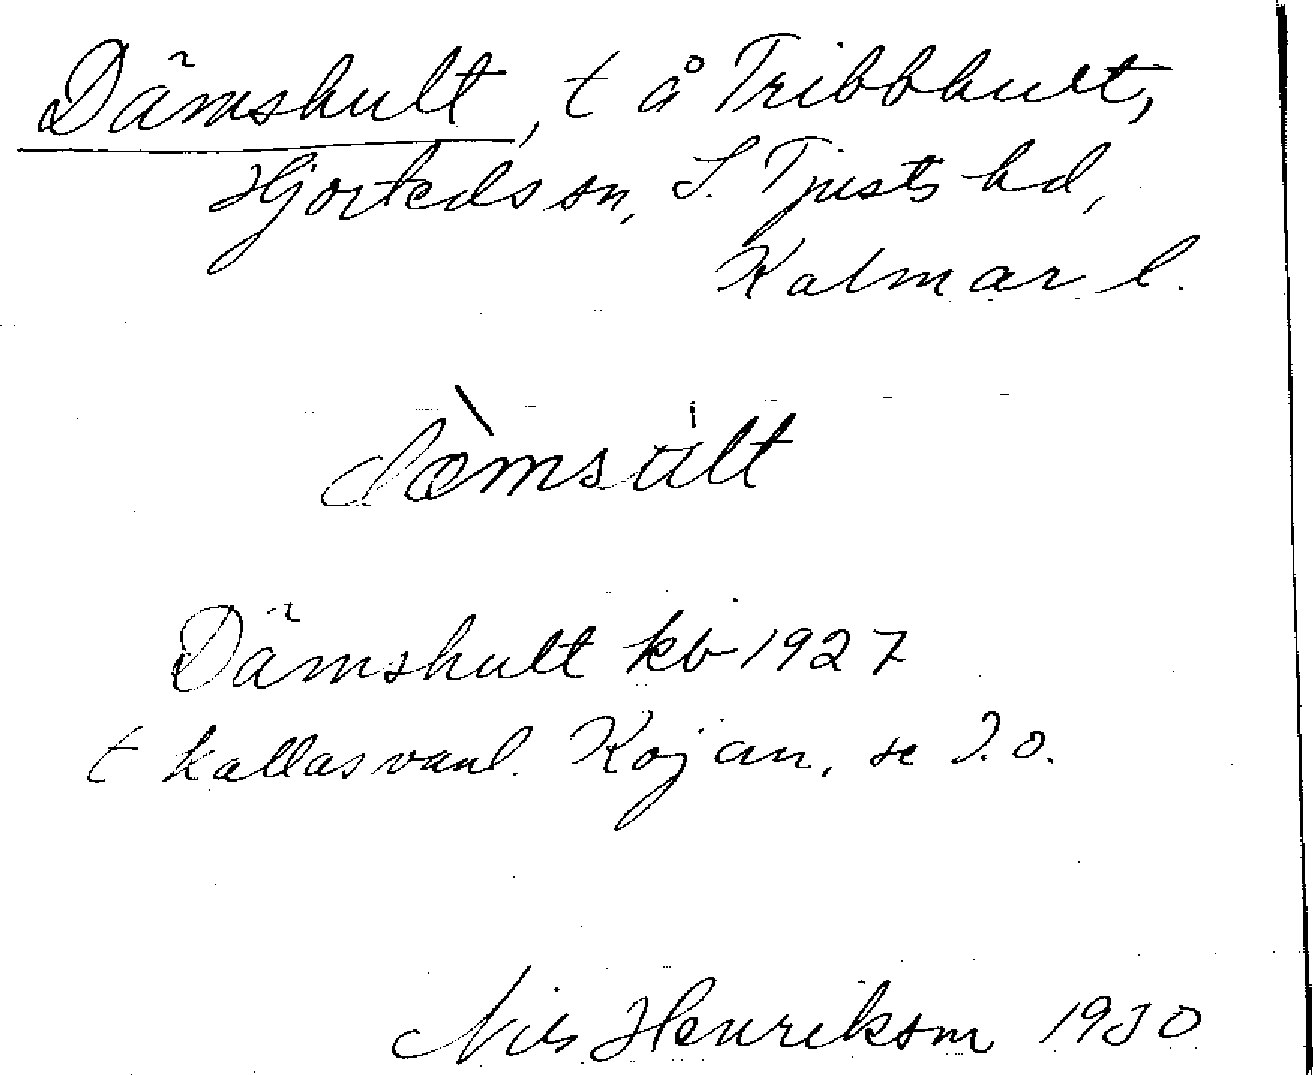 Dämshult, t å Tribbhult,
Hjorteds sn, S. Tjusts hd,
Kalmar l.
dæ̀msu̍lt
Dämshult kb 1927
t kallas vanl. Kojan, se d.o.
Nils Henrikson 1930